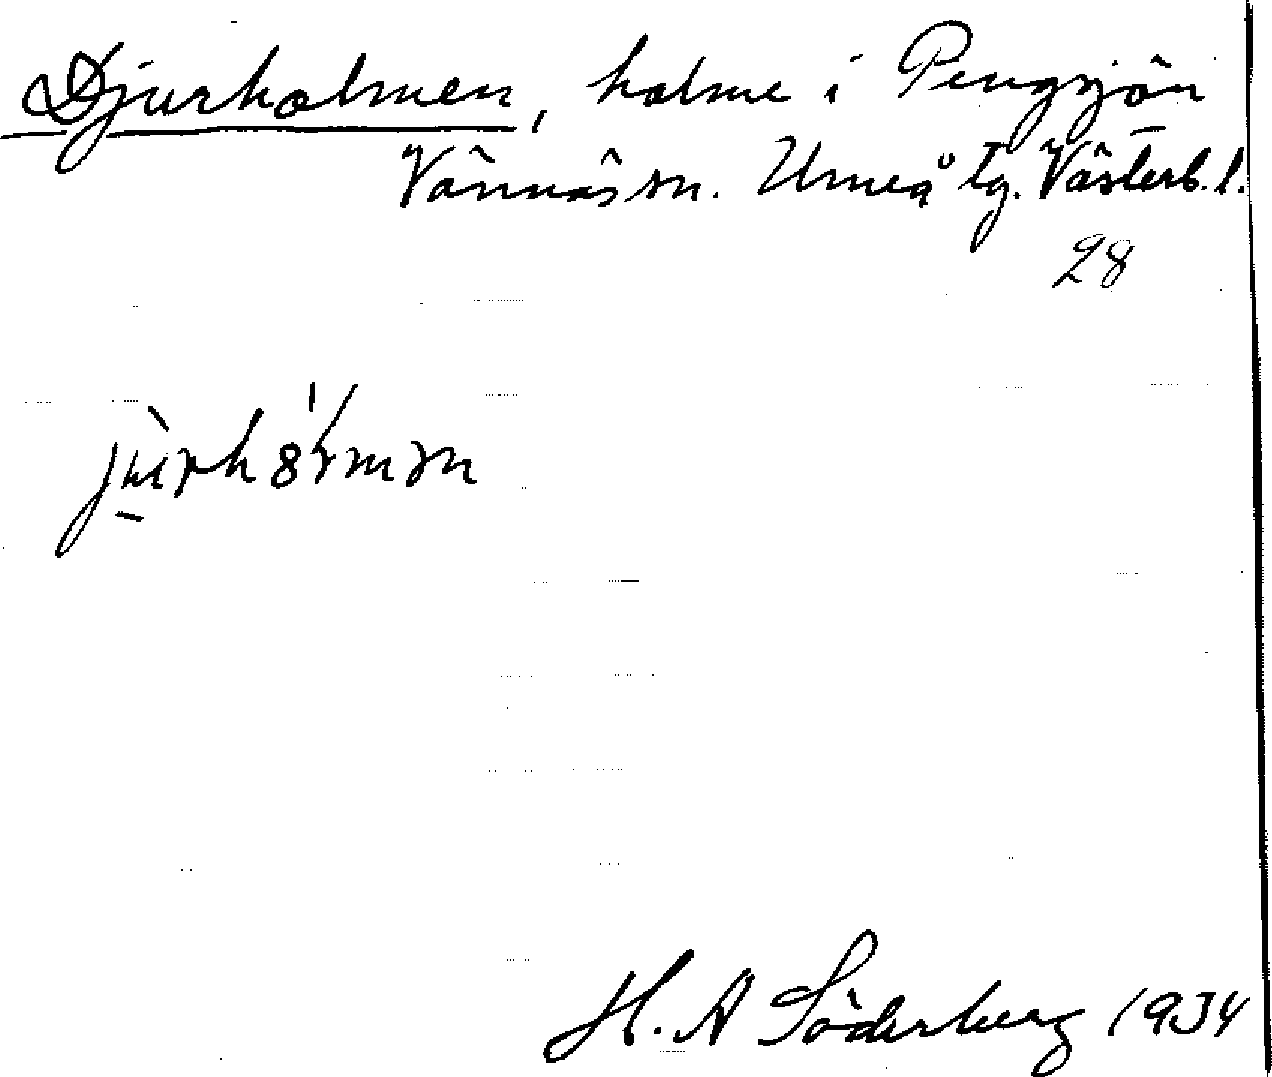 Djurholmen, holme i Pengsjön
Vännäs sn. Umeå tg. Västerb. l.
28
H. A Söderberg 1934